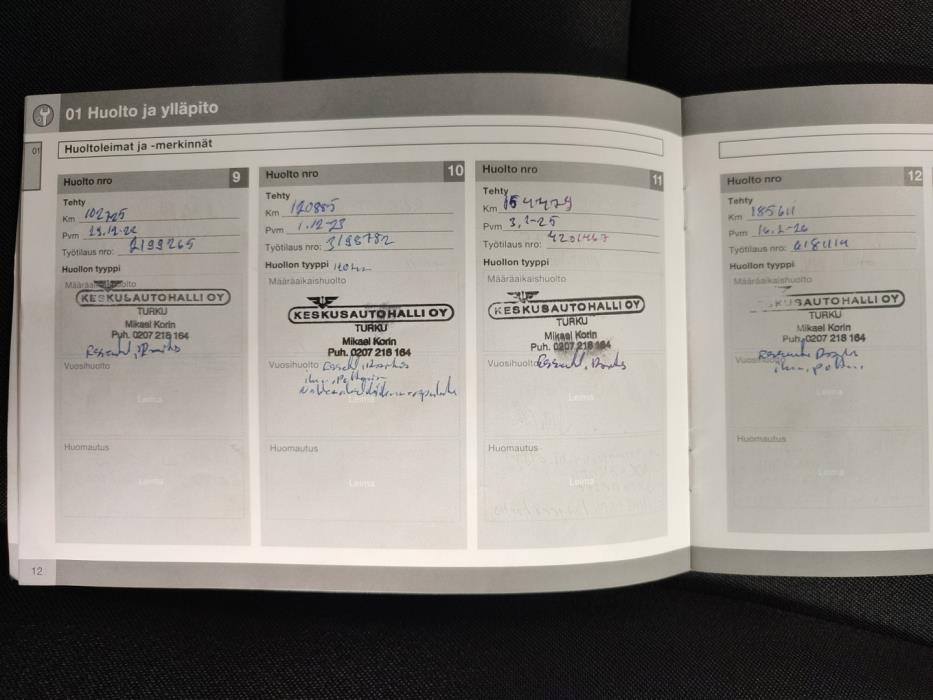 01 Huolto ja ylläpito
01
Huoltoleimat ja -merkinnät
Huolto nro 9
Tehty
Km 102725
Pvm
Työtilaus nro: 2199265
Huollon tyyppi
Määräaikaishuolto
KESKUSAUTOHALLI OY
TURKU
Mikael Korin
Puh. 0207 218 164
Vuosihuolto
Leima
Huomautus
Leima
12
Huolto nro 10
Tehty
Km 120885
Pvm 1.12-23
Työtilaus nro: 3198782
Huollon tyyppi
Määräaikaishuolto
KESKUSAUTOHALLI OY
TURKU
Mikael Korin
Puh. 0207 218 164
Vuosihuolto
Leima
Huomautus
Leima
Huolto nro 11
Tehty
Km 154479
Pvm 3.1-25
Työtilaus nro: 4201467
Huollon tyyppi
Määräaikaishuolto
KESKUSAUTOHALLI OY
TURKU
Mikael Korin
Puh. 0207 218 164
Vuosihuolto
Leima
Huomautus
Leima
Huolto nro 12
Tehty
Km 185611
Pvm 16.1-26
Työtilaus nro:
Huollon tyyppi
Määräaikaishuolto
KUSAUTOHALLI OY
TURKU
Mikael Korin
Puh. 0207 218 164
Leima
Huomautus
Leima